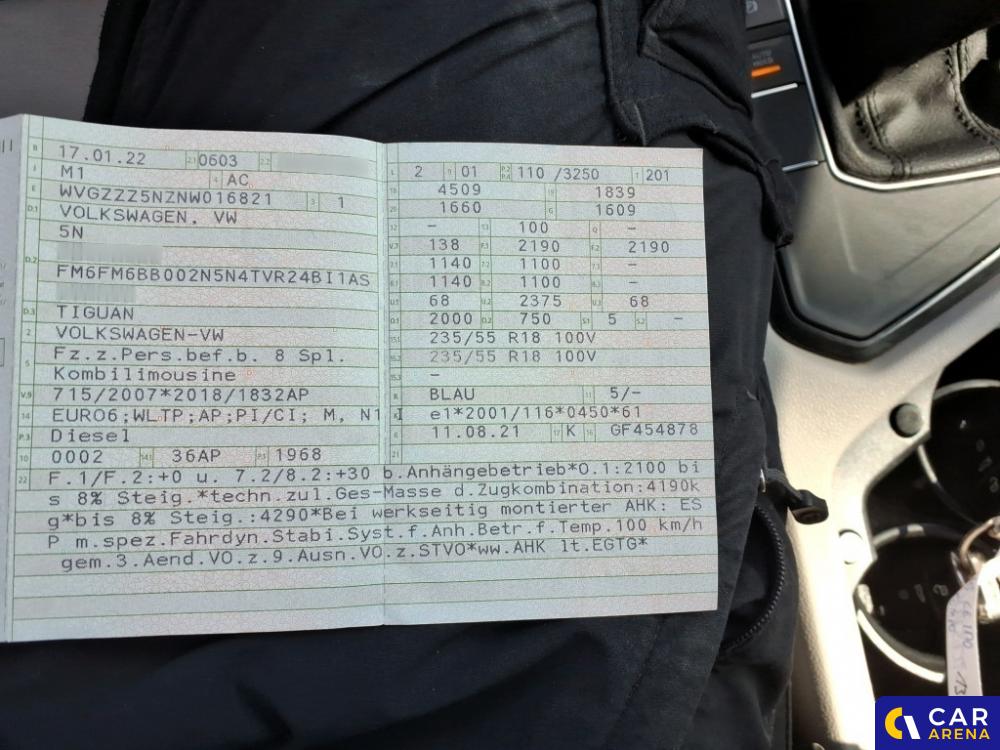 B 17.01.22 2.1 0603 2.2
J M1 4 AC
E WVGZZZ5NZNW016821 3 1
D.1 VOLKSWAGEN, VW
5N
D.2
FM6FM6BB002N5N4TVR24BI1AS
D.3 TIGUAN
2 VOLKSWAGEN-VW
5 Fz.z.Pers.bef.b. 8 Spl.
Kombilimousine
V.9 715/2007*2018/1832AP
14 EURO6;WLTP;AP;PI/CI; M, N1 I
P.3 Diesel
10 0002 14.1 36AP P.1 1968
L 2 9 01 P.2 P.4 110 /3250 T 201
18 4509 19 1839
20 1660 G 1609
12 – 13 100 Q –
V.7 138 F.1 2190 F.2 2190
7.1 1140 7.2 1100 7.3 –
8.1 1140 8.2 1100 8.3 –
U.1 68 U.2 2375 U.3 68
O.1 2000 O.2 750 S.1 5 S.2 –
15.1 235/55 R18 100V
15.2 235/55 R18 100V
15.3 –
R BLAU 11 5/–
K e1*2001/116*0450*61
6 11.08.21 17 K 16 GF454878
21
22 F.1/F.2:+0 u. 7.2/8.2:+30 b.Anhängebetrieb*O.1:2100 bi
s 8% Steig.*techn.zul.Ges-Masse d.Zugkombination:4190k
g*bis 8% Steig.:4290*Bei werkseitig montierter AHK: ES
P m.spez.Fahrdyn.Stabi.Syst.f.Anh.Betr.f.Temp.100 km/h
gem.3.Aend.VO.z.9.Ausn.VO.z.STVO*ww.AHK lt.EGTG*
AUTO
HOLD
CAR
ARENA